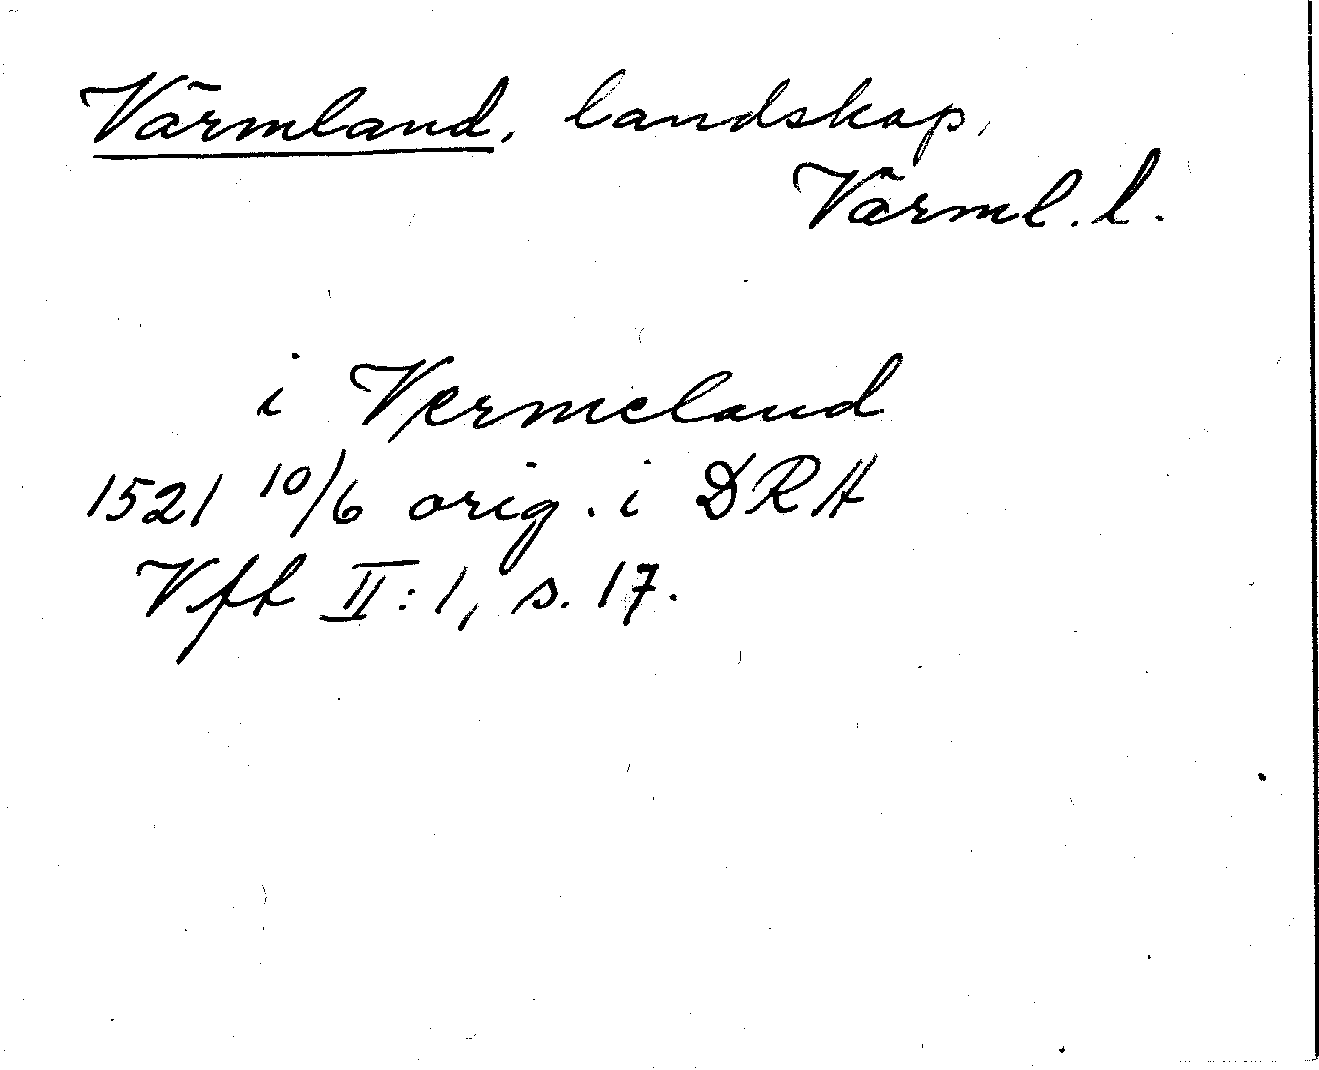 Värmland, landskap,
Värml. l.
i Vermeland
1521 10/6 orig. i DRA
Vft II:1, s. 17.